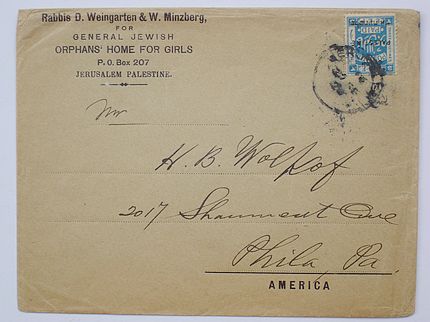 Rabbis D. Weingarten & W. Minzberg,
FOR
GENERAL JEWISH
ORPHANS' HOME FOR GIRLS
P. O. Box 207
JERUSALEM PALESTINE.
Mr
H. B. Wolfof
2017 Shaumont Ave
Phila, Pa.
AMERICA